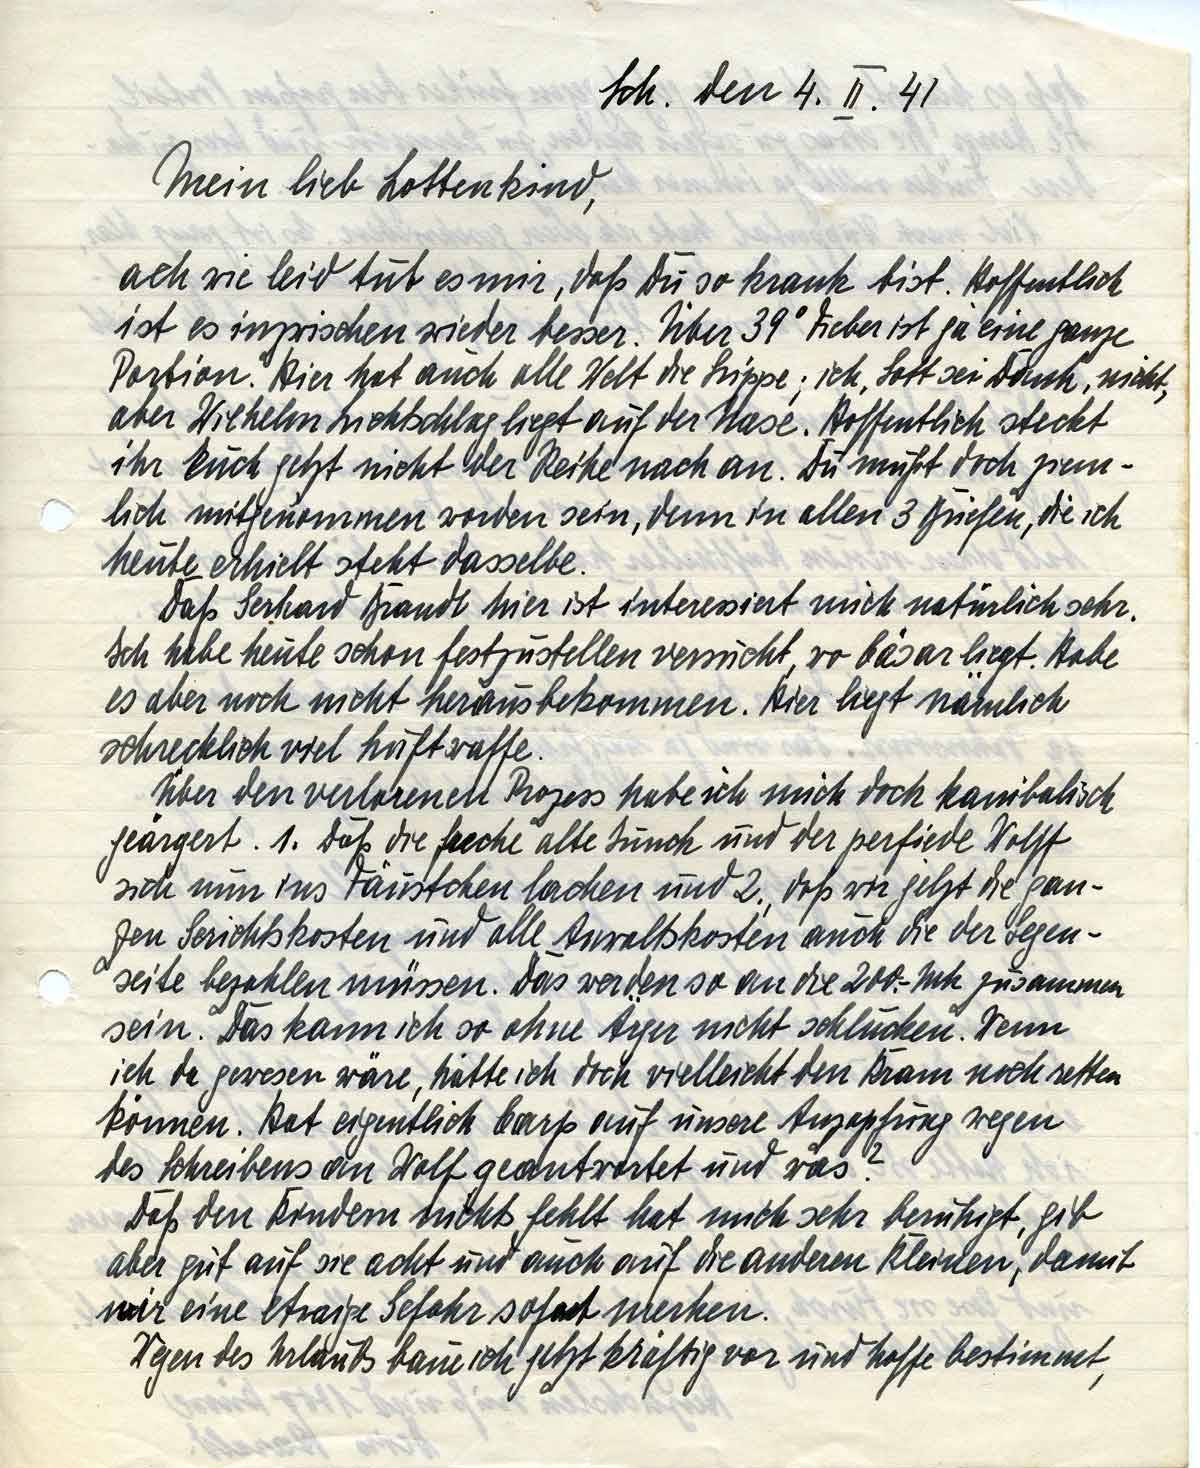 Sch. den 4. II. 41
Mein lieb Lottenkind,
ach wie leid tut es mir, daß Du so krank bist. Hoffentlich
ist es inzwischen wieder besser. Über 39° Fieber ist ja eine ganze
Portion. Hier hat auch alle Welt die Grippe; ich, Gott sei Dank, nicht,
aber Wilhelm Lichtschlag liegt auf der Nase. Hoffentlich steckt
ihr Euch jetzt nicht der Reihe nach an. Du mußt doch ziem-
lich mitgenommen worden sein, denn in allen 3 Briefen, die ich
heute erhielt steht dasselbe.
Daß Gerhard Brandt hier ist interessiert mich natürlich sehr.
Ich habe heute schon festzustellen versucht, wo liegt. Habe
es aber noch nicht herausbekommen. Hier liegt nämlich
schrecklich viel Luftwaffe.
Über den verlorenen Prozess habe ich mich doch kanibalisch
geärgert. 1. Daß die freche alte Junch und der perfiede Wolff
sich nun ins Fäustchen lachen und 2., daß wir jetzt die gan-
zen Gerichtskosten und alle Anwaltskosten auch die der Gegen-
seite bezahlen müssen. Das werden so an die 200.- Mk zusammen
sein. Das kann ich so ohne Ärger nicht schlucken. Wenn
ich da gewesen wäre, hätte ich doch vielleicht den Kram noch retten
können. Hat eigentlich auf unsere Anzapfung wegen
des Schreibens an Wolf geantwortet und was?
Daß den Kindern nichts fehlt hat mich sehr beruhigt, gib
aber gut auf sie acht und auch auf die anderen Kleinen, damit
wir eine etwaige Gefahr sofort merken.
Wegen des Urlaubs baue ich jetzt kräftig vor und hoffe bestimmt,